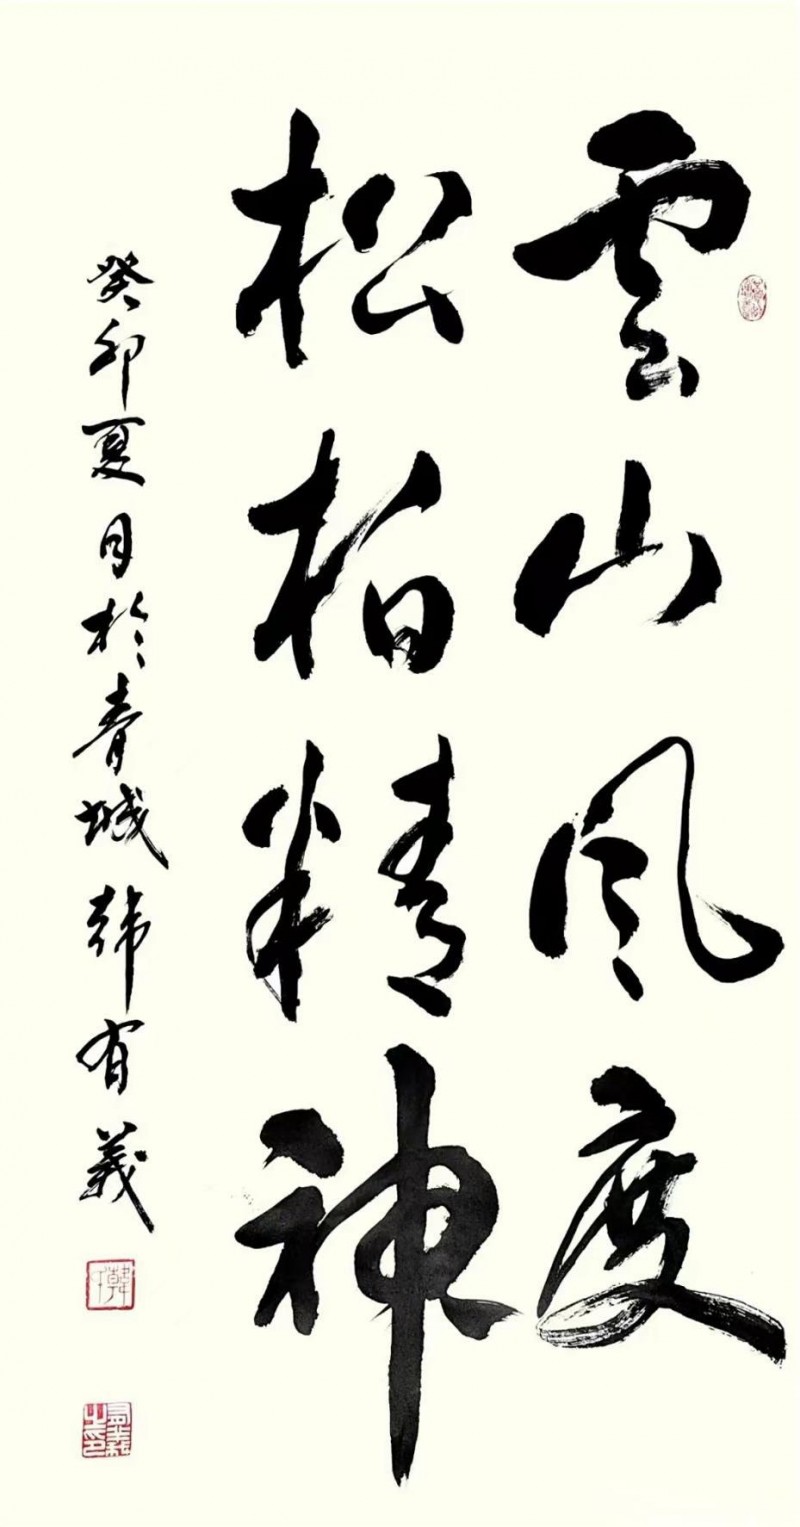 雲山風度
松柏精神
癸卯夏月於青城韓有義